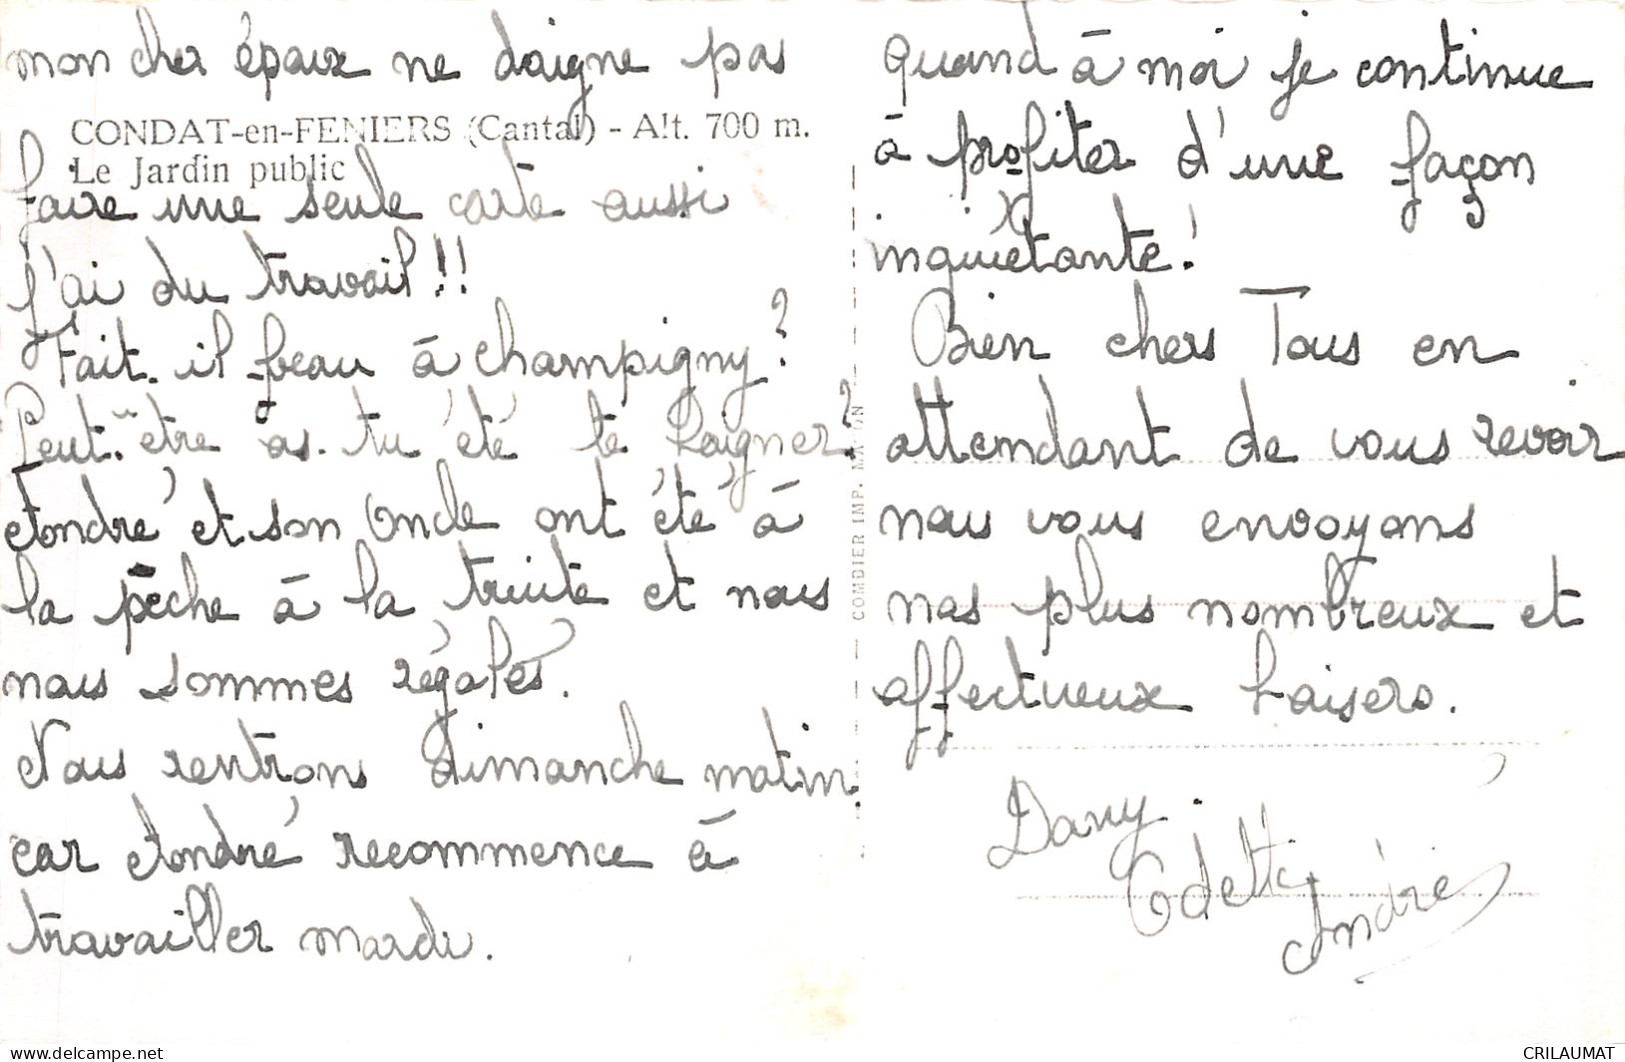 mon cher époux ne daigne pas
CONDAT-en-FENIERS (Cantal) - Alt. 700 m.
Le Jardin public
faire une seule carte aussi
j'ai du travail!!
Fait-il beau à Champigny?
Peut-être as-tu été te baigner?
André et son Oncle ont été à
la pêche à la truite et nous
nous sommes régalés.
Nous rentrons dimanche matin
car André recommence à
travailler mardi.
COMBIER IMP. MACON
Quand à moi je continue
à profiter d'une façon
inquiétante!
Bien chers Tous en
attendant de vous revoir
nous vous envoyons
nos plus nombreux et
affectueux baisers.
Dany
Odette
André
delcampe.net
CRILAUMAT